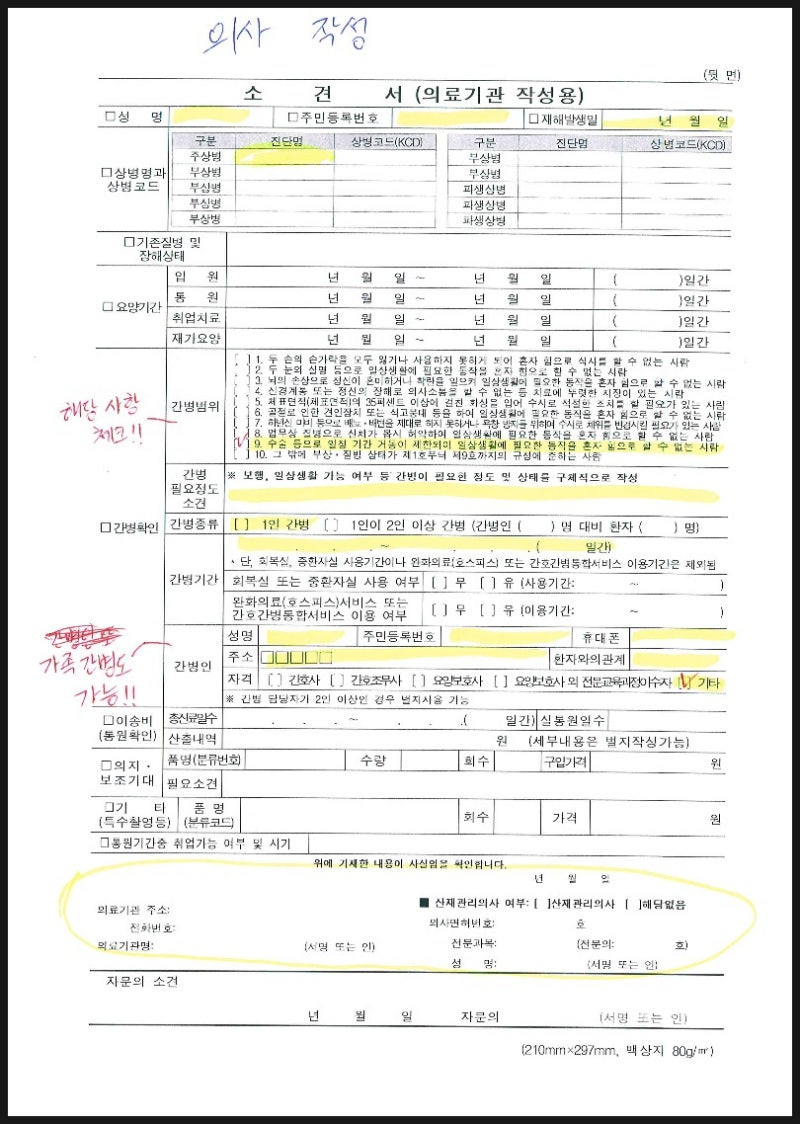 의사 작성
(뒷 면)
소 견 서 (의료기관 작성용)
□성 명 □주민등록번호 □재해발생일 년 월 일
□상병명과 상병코드
구분 진단명 상병코드(KCD) 구분 진단명 상병코드(KCD)
주상병 부상병
부상병 부상병
부상병 파생상병
부상병 파생상병
부상병 파생상병
□기존질병 및 장해상태
□요양기간
입 원 년 월 일 ~ 년 월 일 ( )일간
통 원 년 월 일 ~ 년 월 일 ( )일간
취업치료 년 월 일 ~ 년 월 일 ( )일간
재가요양 년 월 일 ~ 년 월 일 ( )일간
해당 사항
체크!!
□간병확인
간병범위
[ ] 1. 두 손의 손가락을 모두 잃거나 사용하지 못하게 되어 혼자 힘으로 식사를 할 수 없는 사람
[ ] 2. 두 눈의 실명 등으로 일상생활에 필요한 동작을 혼자 힘으로 할 수 없는 사람
[ ] 3. 뇌의 손상으로 정신이 혼미하거나 착란을 일으켜 일상생활에 필요한 동작을 혼자 힘으로 할 수 없는 사람
[ ] 4. 신경계통 또는 정신의 장해로 의사소통을 할 수 없는 등 치료에 뚜렷한 지장이 있는 사람
[ ] 5. 체표면적(체표면적)의 35퍼센트 이상에 걸친 화상을 입어 수시로 적절한 조치를 할 필요가 있는 사람
[ ] 6. 골절로 인한 견인장치 또는 석고붕대 등을 하여 일상생활에 필요한 동작을 혼자 힘으로 할 수 없는 사람
[ ] 7. 하반신 마비 등으로 배뇨·배변을 제대로 하지 못하거나 욕창 방지를 위하여 수시로 체위를 변경시킬 필요가 있는 사람
[ ] 8. 업무상 질병으로 신체가 몹시 허약하여 일상생활에 필요한 동작을 혼자 힘으로 할 수 없는 사람
[✓] 9. 수술 등으로 일정 기간 거동이 제한되어 일상생활에 필요한 동작을 혼자 힘으로 할 수 없는 사람
[ ] 10. 그 밖에 부상·질병 상태가 제1호부터 제9호까지의 규정에 준하는 사람
간병 필요정도 소견
※ 보행, 일상생활 가능 여부 등 간병이 필요한 정도 및 상태를 구체적으로 작성
간병종류 [ ] 1인 간병 [ ] 1인이 2인 이상 간병 (간병인 ( ) 명 대비 환자 ( ) 명)
간병기간
. . . ~ . . . ( 일간)
· 단, 회복실, 중환자실 사용기간이나 완화의료(호스피스) 또는 간호간병통합서비스 이용기간은 제외됨
회복실 또는 중환자실 사용 여부 [ ] 무 [ ] 유 (사용기간: ~ )
완화의료(호스피스)서비스 또는 간호간병통합서비스 이용 여부 [ ] 무 [ ] 유 (이용기간: ~ )
가족 간병도
가능!!
간병인
성명 주민등록번호 휴대폰
주소 □□□□□ 환자와의관계
자격 [ ] 간호사 [ ] 간호조무사 [ ] 요양보호사 [ ] 요양보호사 외 전문교육과정이수자 [✓] 기타
※ 간병 담당자가 2인 이상인 경우 별지사용 가능
□이송비 (통원확인)
총진료일수 . . . ~ . . .( 일간) 실통원일수
산출내역 원 (세부내용은 별지작성가능)
□의지·보조기대
품명(분류번호) 수량 회수 구입가격 원
필요소견
□기 타 (특수촬영등) 품 명 (분류코드) 회수 가격 원
□통원기간중 취업가능 여부 및 시기
위에 기재한 내용이 사실임을 확인합니다.
년 월 일
의료기관 주소: ■ 산재관리의사 여부: [ ]산재관리의사 [ ]해당없음
전화번호: 의사면허번호: 호
의료기관명: (서명 또는 인) 전문과목: (전문의: 호)
성 명: (서명 또는 인)
자문의 소견
년 월 일 자문의 (서명 또는 인)
(210mm×297mm, 백상지 80g/㎡)